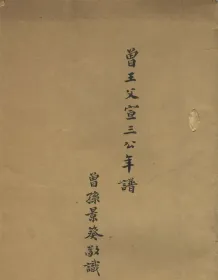 曾王父宣三公年譜
曾孫景葵敬識